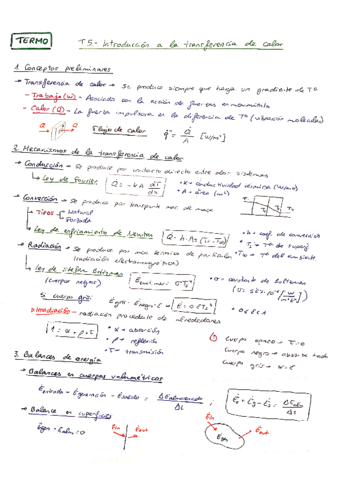 TERMO
T5.- Introducción a la transferencia de calor
1. Conceptos preliminares
→ Transferencia de calor → Se produce siempre que haya un gradiente de Tª
- Trabajo (W) - Asociado con la acción de fuerzas en movimiento
- Calor (Q) - La fuerza impulsora es la diferencia de Tª (vibración molecular)
Flujo de calor q̇" = Q̇/A [W/m²]
2. Mecanismos de la transferencia de calor
→ Conducción → Se produce por contacto directo entre dos sistemas
→ Ley de Fourier Q̇ = -k A dT/dx
• K = conductividad térmica (W/mK)
• A = área (m²)
→ Convección → Se produce por transporte de masa
→ Tipos Natural
Forzada
→ Ley de enfriamiento de Newton Q̇ = h·A (Ts - T∞)
• h = coef. de convección
• Ts = Tª de superf
• T∞ = Tª del ambiente
→ Radiación → Se produce por
(radiación electromagnética)
→ Ley de Stefan Boltzmann
(cuerpo negro)
= σTs⁴
• σ = constante de Boltzmann
Si cuerpo gris
• 0≤ε≤1
Irradiación → radiación procedente de alrededores
1 = α + ρ + τ
• α = absorción
• ρ = reflexión
• τ = transmisión
Cuerpo opaco → τ=0
Cuerpo negro → absorbe todo
Cuerpo gris → α=ε
3. Balances de energía
→ Balances en cuerpos volumétricos
→ Balance en superficies
Ėin
Ėout
Ėin
Ėgen
Ėout